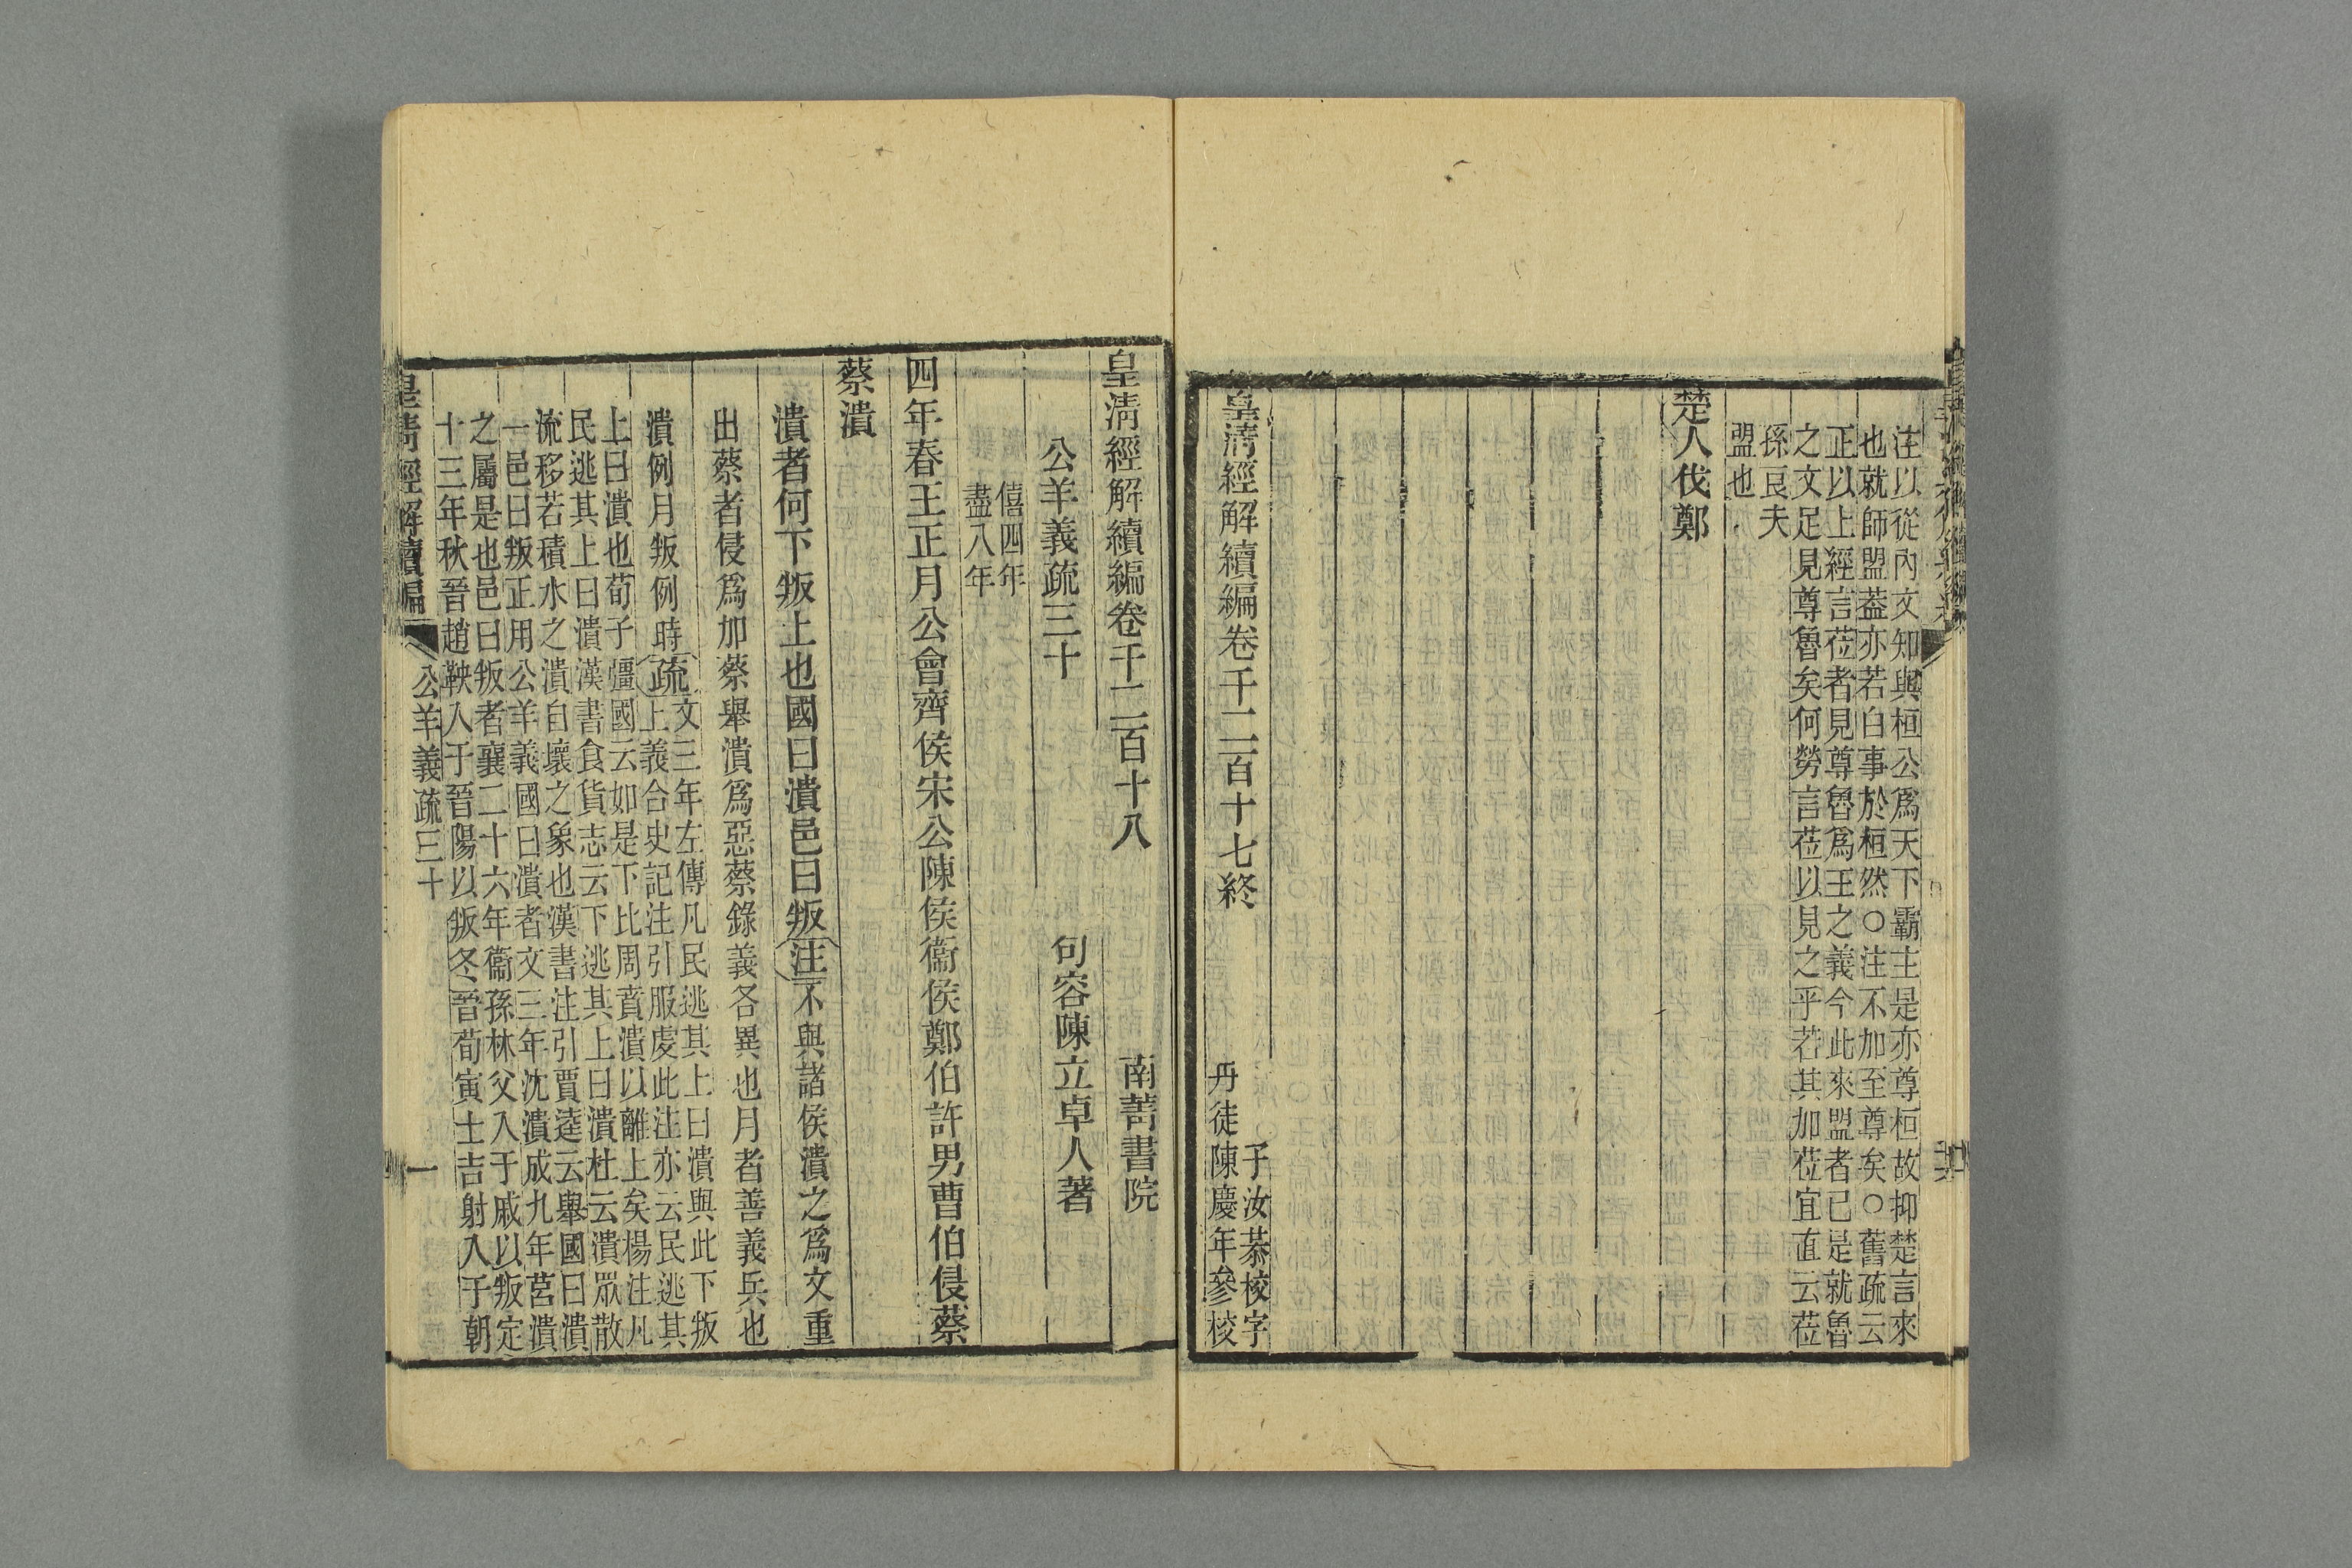 注以從內文知與桓公爲天下霸主是亦尊桓故抑楚言來
也就師盟葢亦若白事於桓然○注不加至尊矣○舊疏云
正以上經言莅者見尊魯爲王之義今此來盟者已是就魯
之文足見尊魯矣何勞言莅以見之乎若其加莅宜直云莅
孫良夫
盟也
楚人伐鄭
皇淸經解續編卷千二百十七終
子汝恭校字
丹徒陳慶年參校
皇淸經解續編卷千二百十八
南菁書院
公羊義疏三十
句容陳立卓人著
僖四年
盡八年
四年春王正月公會齊侯宋公陳侯衞侯鄭伯許男曹伯侵蔡
蔡潰
潰者何下叛上也國曰潰邑曰叛注不與諸侯潰之爲文重
出蔡者侵爲加蔡舉潰爲惡蔡錄義各異也月者善義兵也
潰例月叛例時疏
文三年左傳凡民逃其上曰潰與此下叛
上義合史記注引服虔此注亦云民逃其
上曰潰也荀子彊國云如是下比周賁潰以離上矣楊注凡
民逃其上曰潰漢書食貨志云下逃其上曰潰杜云潰眾散
流移若積水之潰自壞之象也漢書注引賈逵云舉國曰潰
一邑曰叛正用公羊義國曰潰者文三年沈潰成九年莒潰
之屬是也邑曰叛者襄二十六年衞孫林父入于戚以叛定
十三年秋晉趙鞅入于晉陽以叛冬晉荀寅士吉射入于朝
皇淸經解續編
公羊義疏三十
一